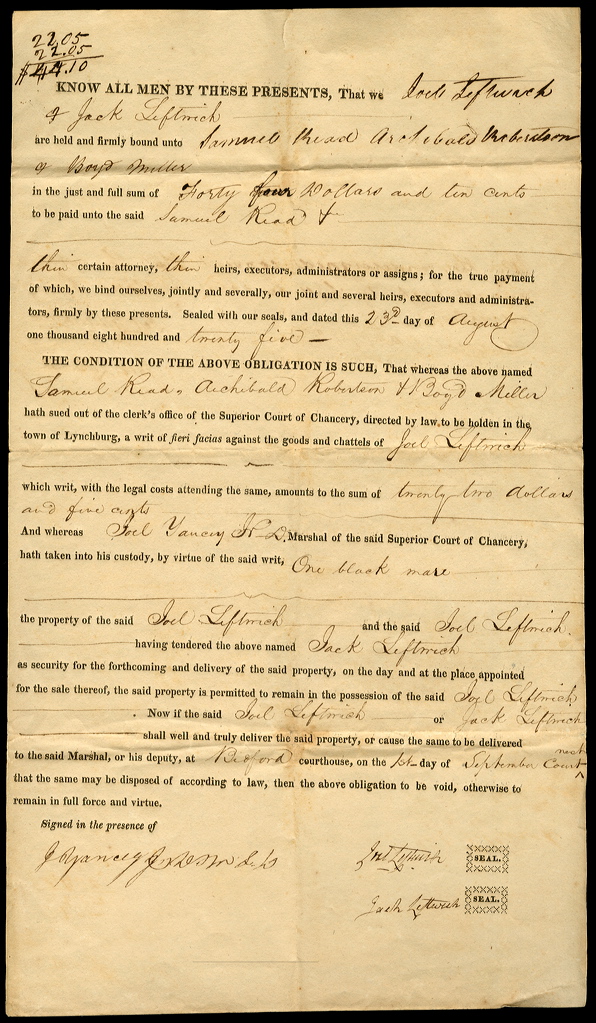 22.05
22.05
$44.10
KNOW ALL MEN BY THESE PRESENTS, That we Joel Leftwich
& Jack Leftwich
are held and firmly bound unto Samuel Read Archibald Robertson
& Boyd Miller
in the just and full sum of Forty four Dollars and ten cents
to be paid unto the said Samuel Read &c
their certain attorney, their heirs, executors, administrators or assigns; for the true payment
of which, we bind ourselves, jointly and severally, our joint and several heirs, executors and administra-
tors, firmly by these presents. Sealed with our seals, and dated this 23rd day of August
one thousand eight hundred and twenty five
THE CONDITION OF THE ABOVE OBLIGATION IS SUCH, That whereas the above named
Samuel Read, Archibald Robertson & Boyd Miller
hath sued out of the clerk's office of the Superior Court of Chancery, directed by law to be holden in the
town of Lynchburg, a writ of fieri facias against the goods and chattels of Joel Leftwich
which writ, with the legal costs attending the same, amounts to the sum of twenty two dollars
and five cents
And whereas Joel Yancey Jr D. Marshal of the said Superior Court of Chancery,
hath taken into his custody, by virtue of the said writ, One black mare
the property of the said Joel Leftwich and the said Joel Leftwich
having tendered the above named Jack Leftwich
as security for forthcoming and delivery of the said property, on the day and at the place appointed
for the sale thereof, the said property is permitted to remain in the possession of the said Joel Leftwich
. Now if the said Joel Leftwich or Jack Leftwich
shall well and truly deliver the said property, or cause the same to be delivered
to the said Marshal, or his deputy, at Bedford courthouse, on the 1st day of September next Court
that the same may be disposed of according to law, then the above obligation to be void, otherwise to
remain in full force and virtue.
Signed in the presence of
J Yancey Jr
Joel Leftwich SEAL.
Jack Leftwich SEAL.